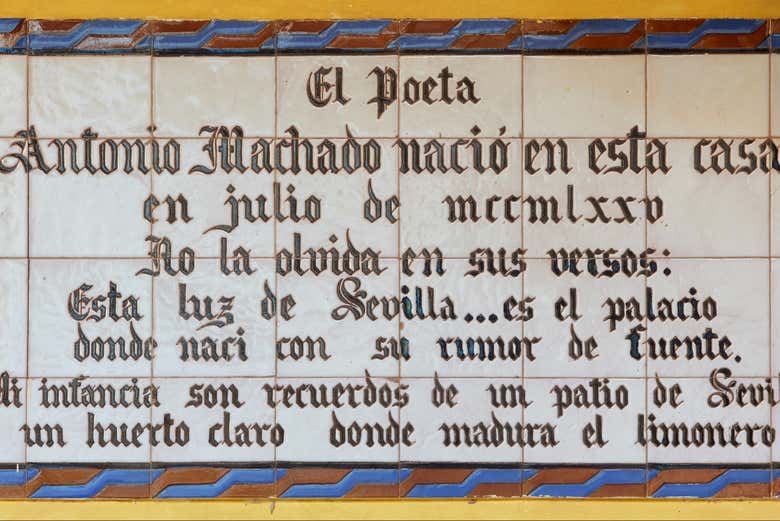 El Poeta
Antonio Machado nació en esta casa
en julio de mccmlxxv
No la olvida en sus versos:
Esta luz de Sevilla...es el palacio
donde naci con su rumor de fuente.
Mi infancia son recuerdos de un patio de Sevi
un huerto claro donde madura el limonero